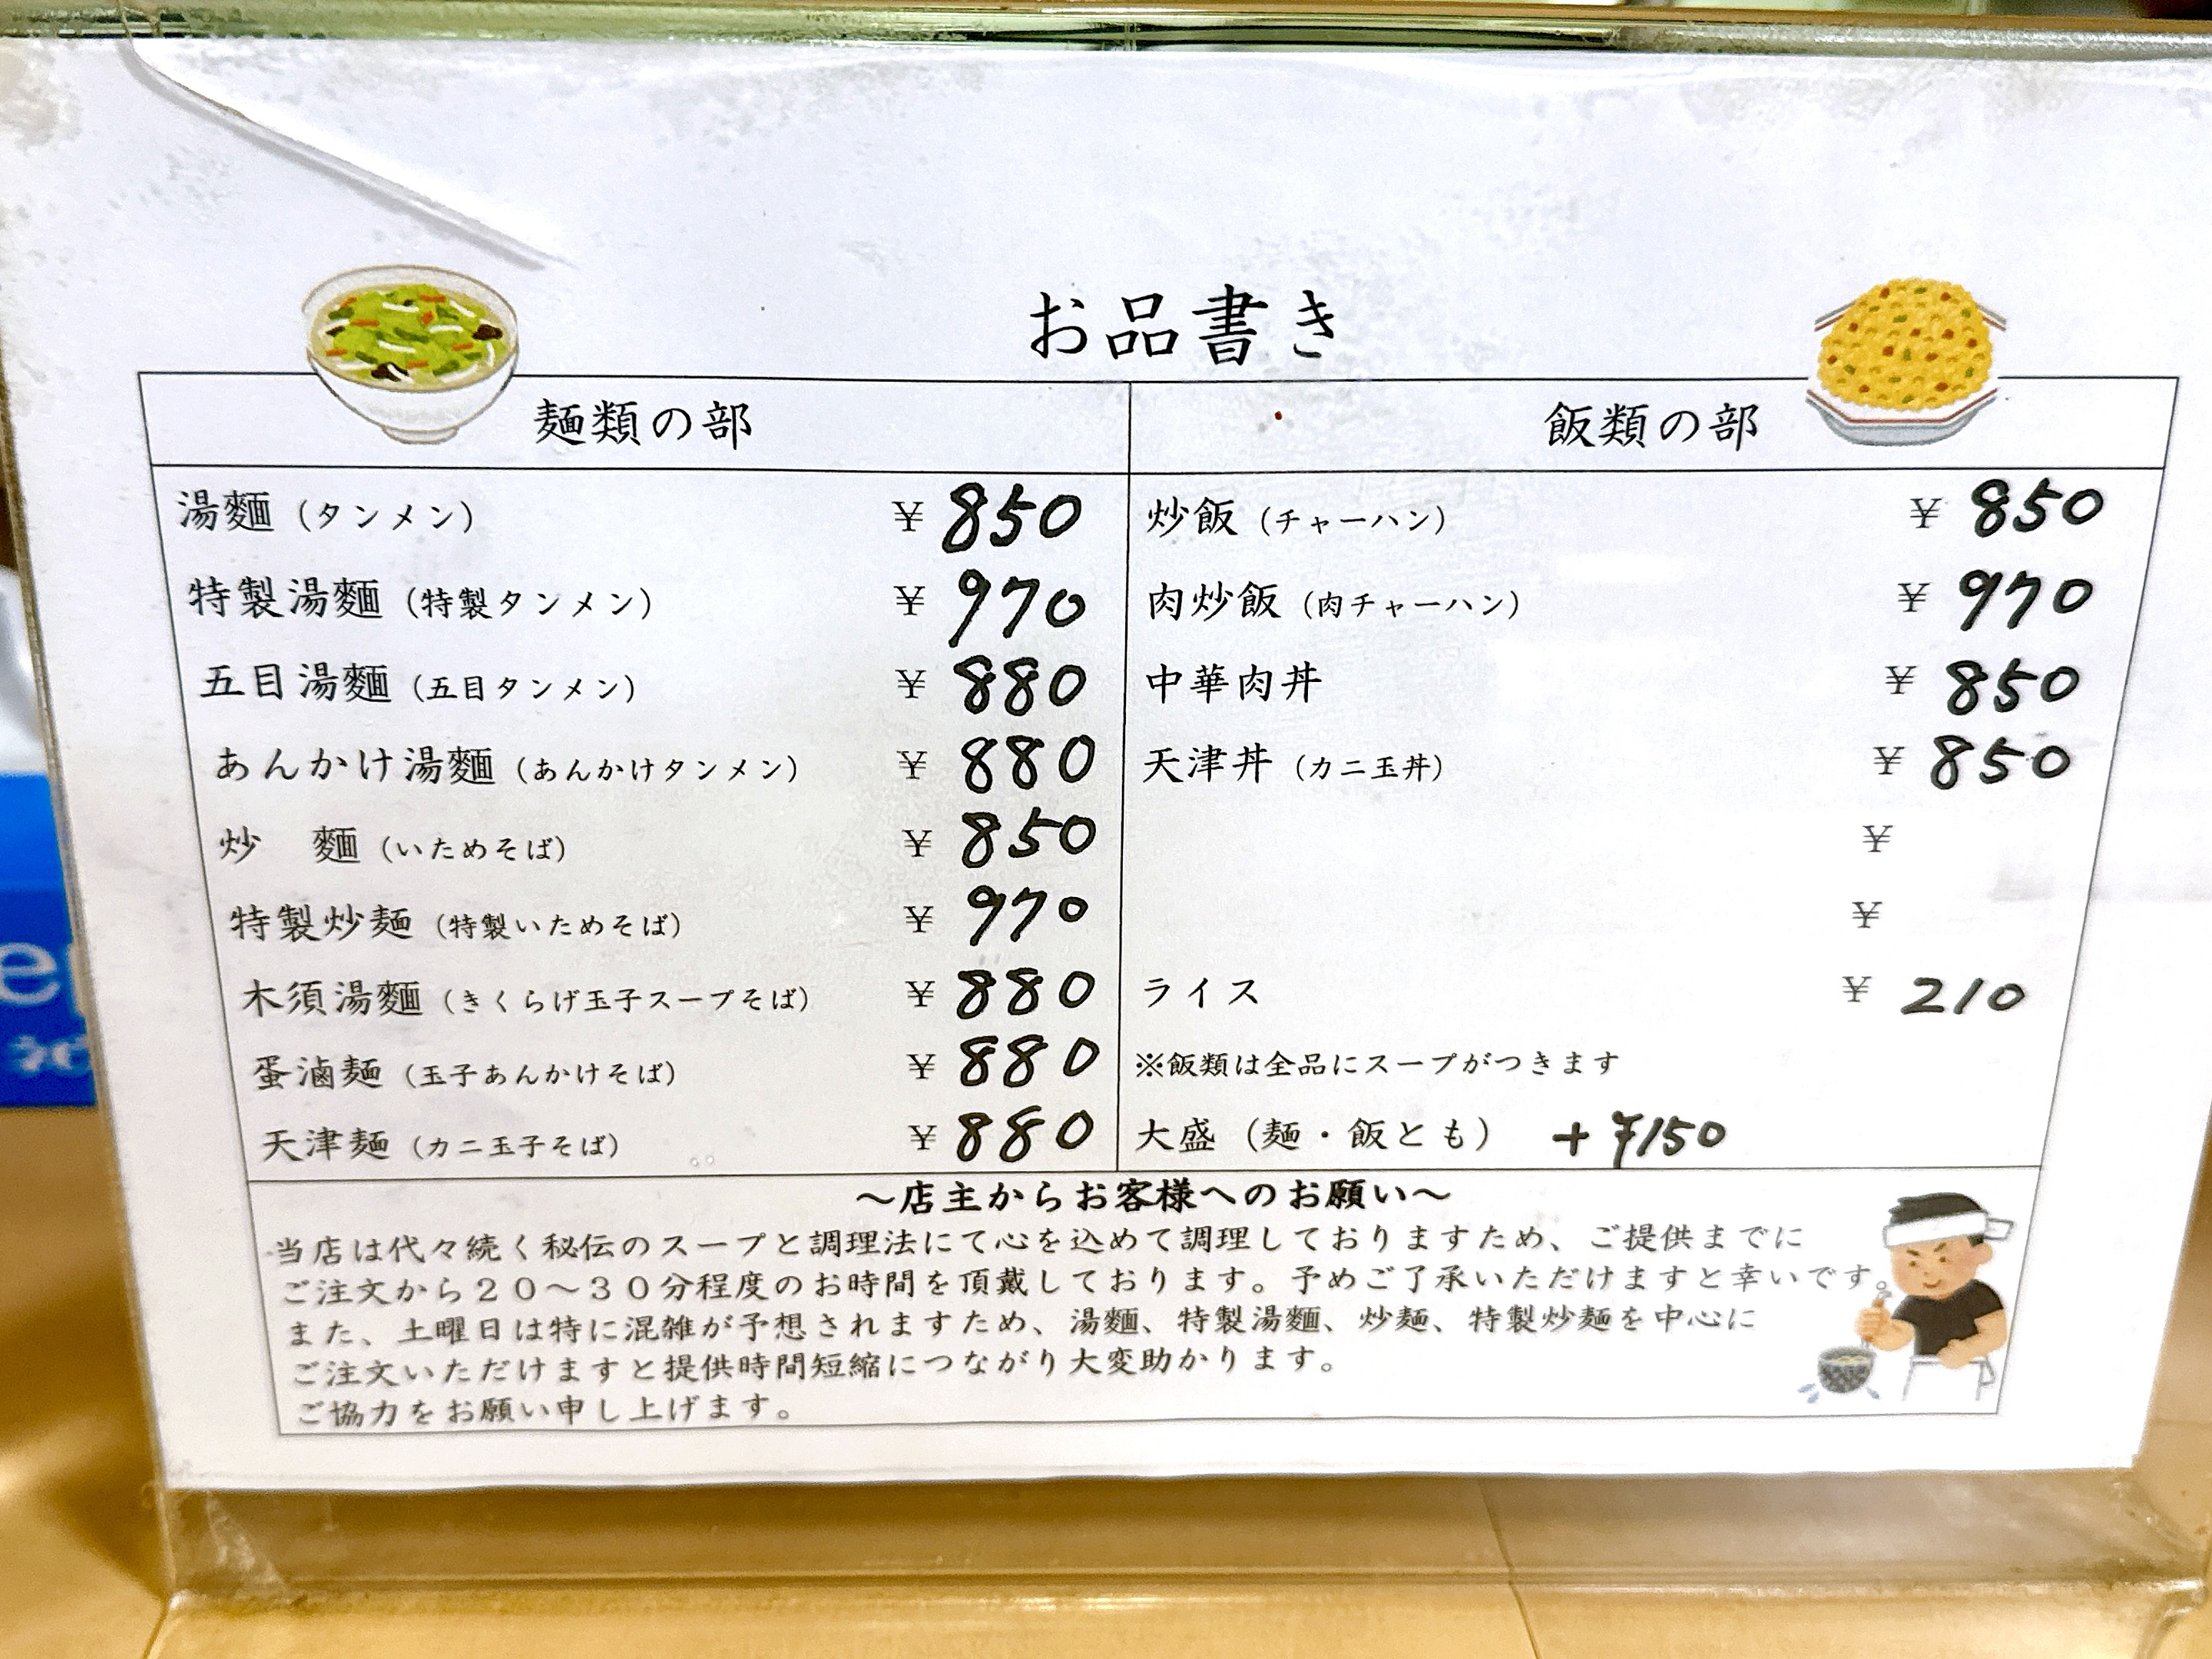 お品書き
麺類の部
湯麵（タンメン） ¥ 850
特製湯麵（特製タンメン） ¥ 970
五目湯麵（五目タンメン） ¥ 880
あんかけ湯麵（あんかけタンメン） ¥ 880
炒　麵（いためそば） ¥ 850
特製炒麺（特製いためそば） ¥ 970
木須湯麵（きくらげ玉子スープそば） ¥ 880
蛋滷麺（玉子あんかけそば） ¥ 880
天津麺（カニ玉子そば） ¥ 880
飯類の部
炒飯（チャーハン） ¥ 850
肉炒飯（肉チャーハン） ¥ 970
中華肉丼 ¥ 850
天津丼（カニ玉丼） ¥ 850
¥
¥
ライス ¥ 210
※飯類は全品にスープがつきます
大盛（麺・飯とも） +¥150
～店主からお客様へのお願い～
当店は代々続く秘伝のスープと調理法にて心を込めて調理しておりますため、ご提供までに
ご注文から２０～３０分程度のお時間を頂戴しております。予めご了承いただけますと幸いです。
また、土曜日は特に混雑が予想されますため、湯麵、特製湯麵、炒麺、特製炒麺を中心に
ご注文いただけますと提供時間短縮につながり大変助かります。
ご協力をお願い申し上げます。